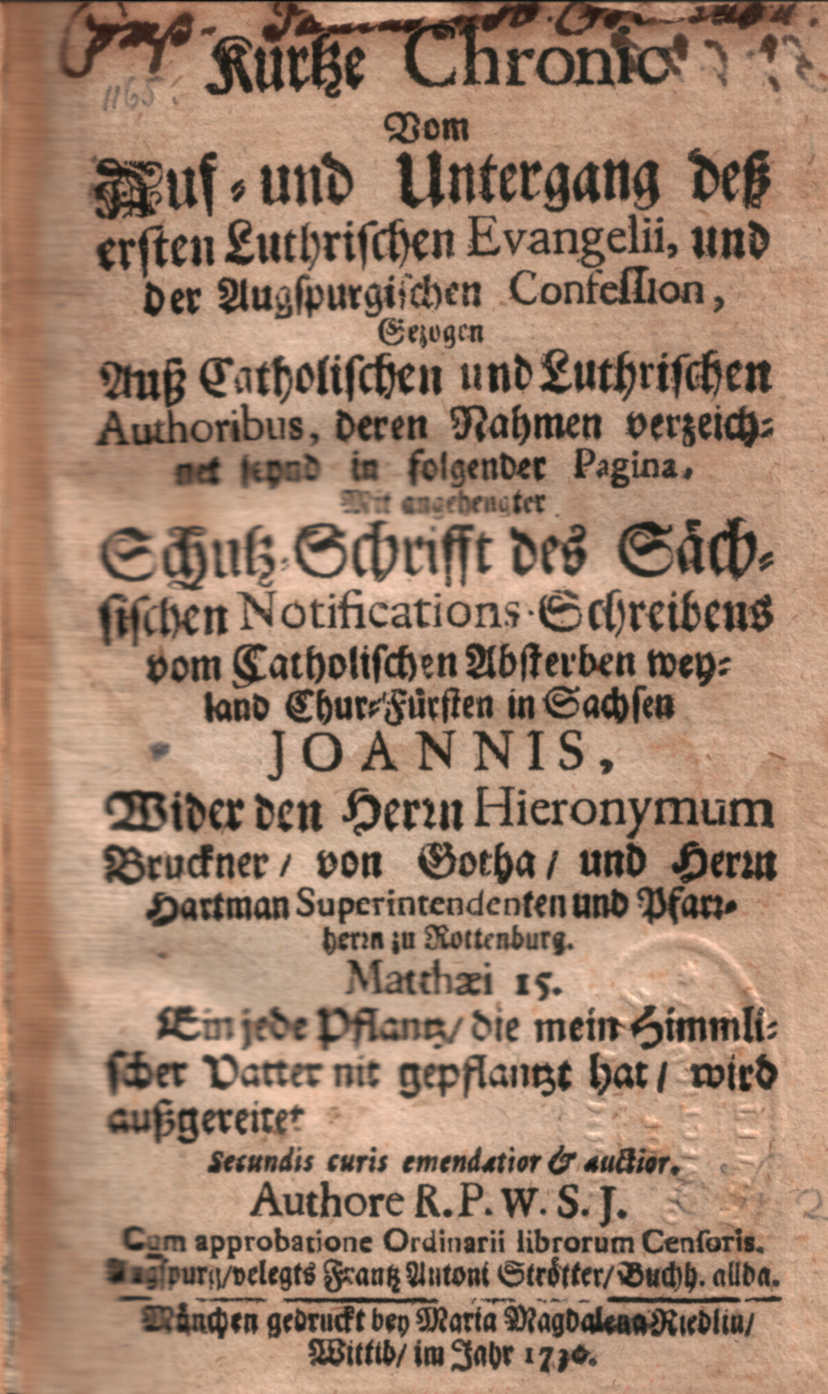 1165
Kurtze Chronic
Vom
Auf- und Untergang deß
ersten Luthrischen Evangelii, und
der Augspurgischen Confession,
Gezogen
Auß Catholischen und Luthrischen
Authoribus, deren Nahmen verzeich-
net seynd in folgender Pagina.
Mit angehengter
Schutz-Schrifft des Säch-
sischen Notifications-Schreibens
vom Catholischen Absterben wey-
land Chur-Fürsten in Sachsen
JOANNIS,
Wider den Herrn Hieronymum
Bruckner / von Gotha / und Herrn
Hartman Superintendenten und Pfarr-
herrn zu Rottenburg.
Matthæi 15.
Ein jede Pflantz / die mein Himmli-
scher Vatter nit gepflantzt hat / wird
außgereitet
Secundis curis emendatior & auctior.
Authore R. P. W. S. J.
Cum approbatione Ordinarii librorum Censoris.
Augspurg / velegts Frantz Antoni Strötter / Buchh. allda.
München gedruckt bey Maria Magdalena Riedlin /
Wittib / im Jahr